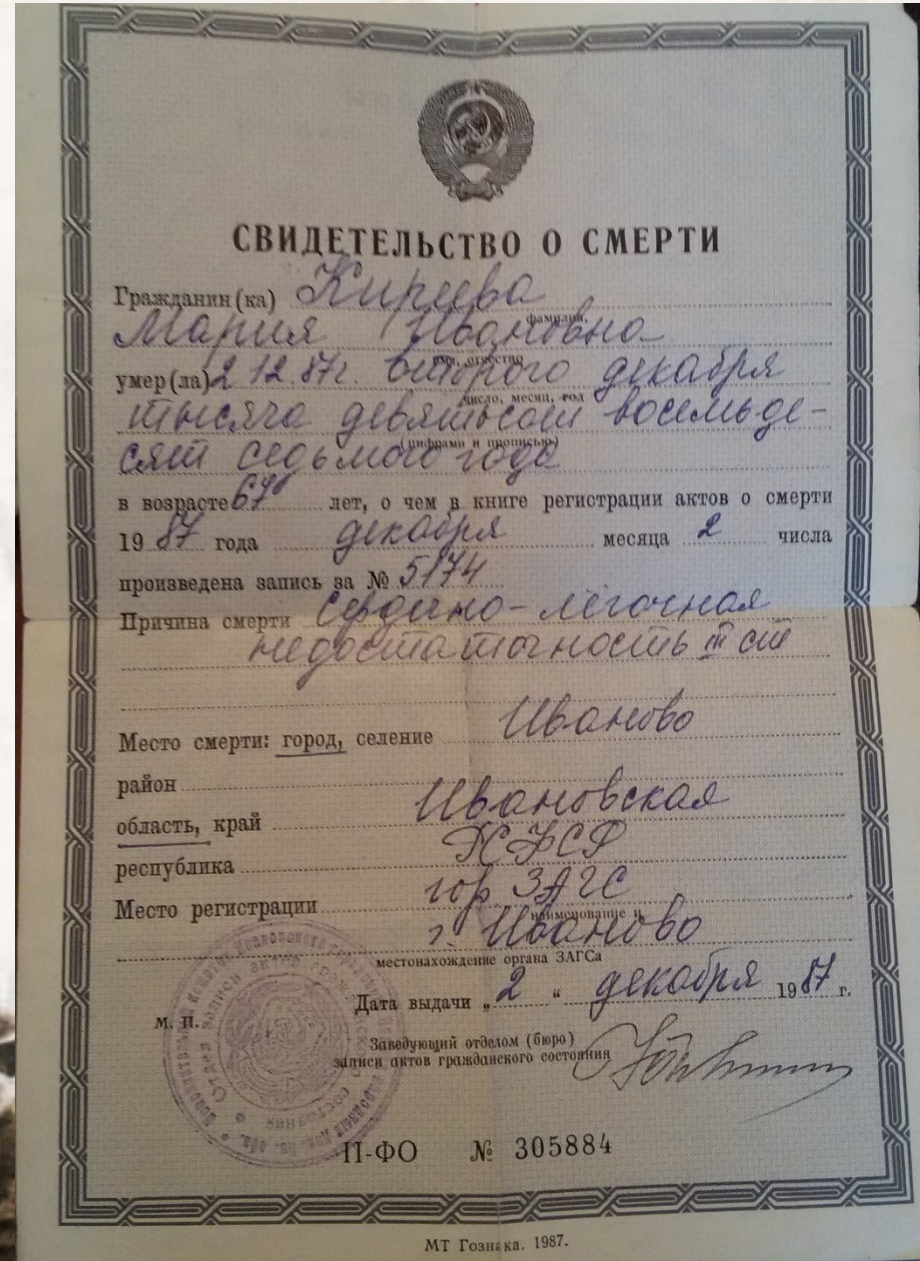 СВИДЕТЕЛЬСТВО О СМЕРТИ
Гражданин(ка) Киреева
фамилия,
Мария Ивановна
имя, отчество
умер(ла) 2.12.87г. второго декабря
число, месяц, год
тысяча девятьсот восемьде-
(цифрами и прописью)
сят седьмого года
в возрасте 67 лет, о чем в книге регистрации актов о смерти
1987 года декабря месяца 2 числа
произведена запись за № 5174
Причина смерти Сердечно-легочная
недостаточность III ст
Место смерти: город, селение Иваново
район
область, край Ивановская
республика РСФСР
Место регистрации гор ЗАГС
наименование и
г. Иваново
местонахождение органа ЗАГСа
Дата выдачи „2“ декабря 1987 г.
М. П.
Заведующий отделом (бюро)
записи актов гражданского состояния
II-ФО № 305884
МТ Гознака. 1987.